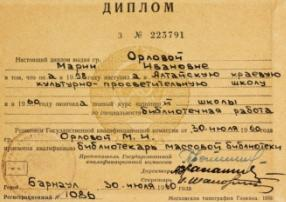 ДИПЛОМ
№ 223791
Настоящий диплом выдан гр. Орловой
Марии Ивановне
в том, что она в 1958 году поступила в Алтайскую краевую
культурно-просветительную школу
и в 1960 году окончила полный курс названной школы
по специальности библиотечная работа
Решением Государственной квалификационной комиссии от 30 июля 1960 г.
гр. Орловой М. И.
присвоена квалификация библиотекарь массовой библиотеки
Председатель Государственной
квалификационной комиссии
Директор
Секретарь
Барнаул 30 июля 1960 г.
1026
Московская типография Гознака. 1958.